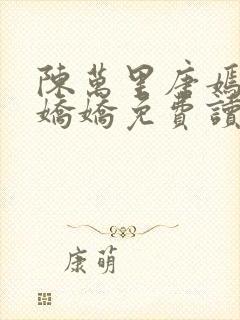 陳萬里唐嫣
嬌嬌免費讀
康萌